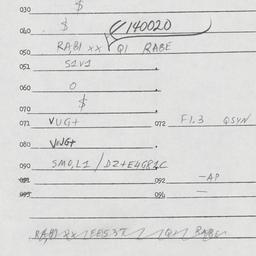 030 $
040 $ 140020
050 RABI xx QI RABE
051 S1V1
060 0
070 $
071 VUG+ 072 F1.3 QSYN
080 VUG+
090 SMO,L1 / DZ+E4GR1C
091 092 -AP
095 096 —
RABI xx QI RABE